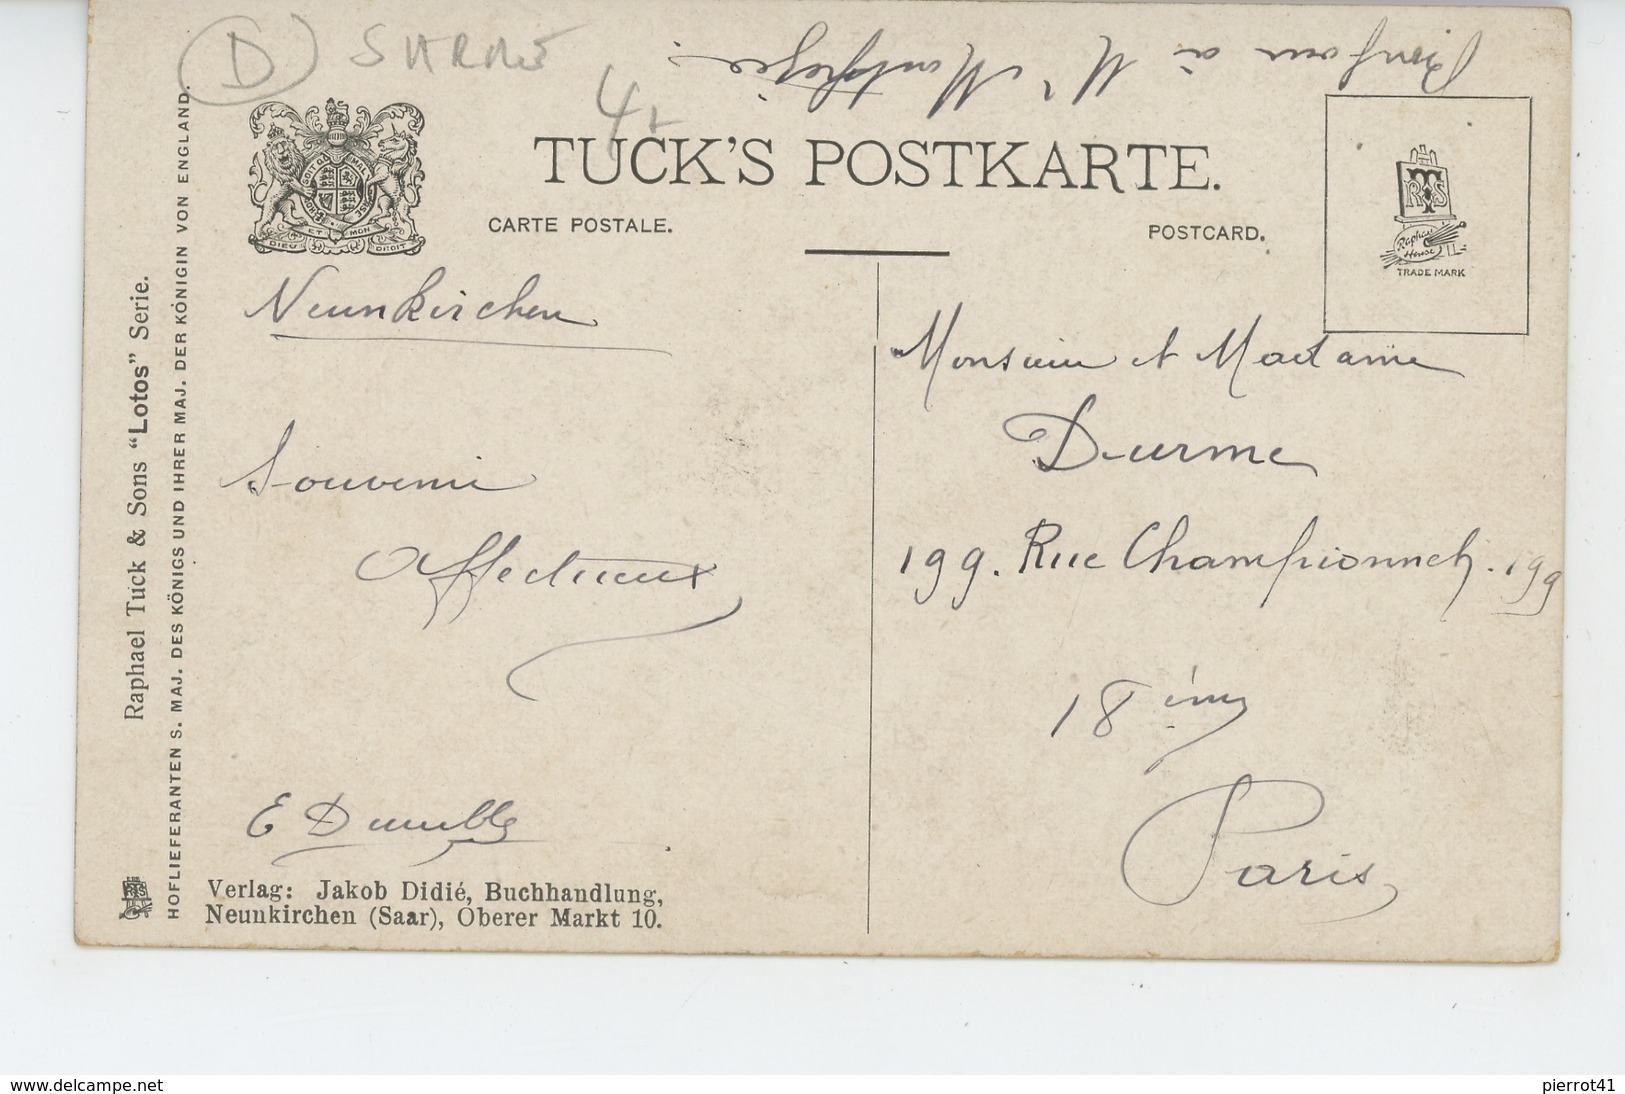 D SARRE
4
Bonjour à Mr
TUCK'S POSTKARTE.
CARTE POSTALE.
POSTCARD.
DIEU ET MON DROIT
Raphael House
TRADE MARK
Raphael Tuck & Sons “Lotos” Serie.
HOFLIEFERANTEN S. MAJ. DES KÖNIGS UND IHRER MAJ. DER KÖNIGIN VON ENGLAND.
Neunkirchen
Souvenir
Affectueux
Monsieur et Madame
Durme
199. Rue Championnet. 199
18 ème
Paris
Verlag: Jakob Didié, Buchhandlung,
Neunkirchen (Saar), Oberer Markt 10.
www.delcampe.net
pierrot41